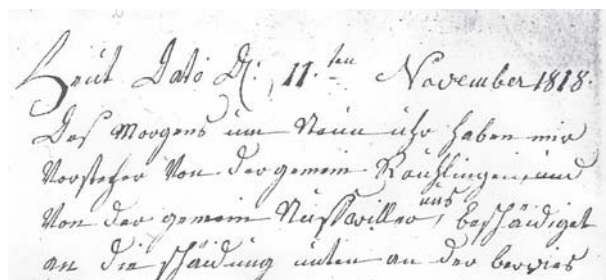 Heut Dato D: 11.ten November 1818.
Des Morgens um Neun uhr haben mir
Vorsteher Von der gemein Rouhlingen und
Von der gemein Nussweiller uns beschäidiget
an die schäidung unten an der berwies